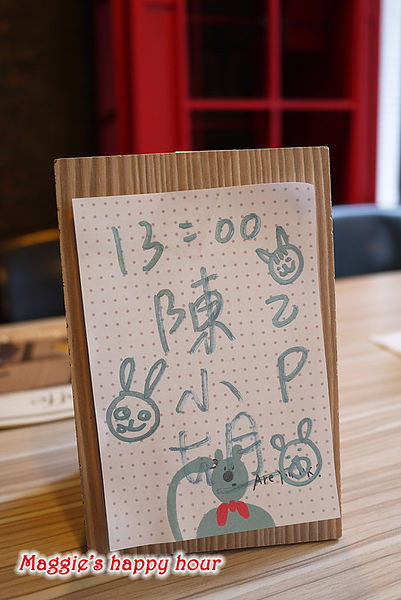 13:00
陳小姐
2P
Are
Maggie's happy hour